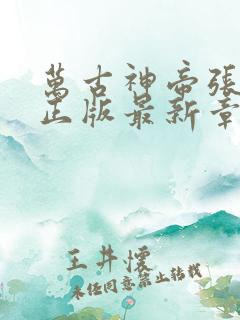 萬古神帝張
正版最新章
王井懷
未经同意禁止转载